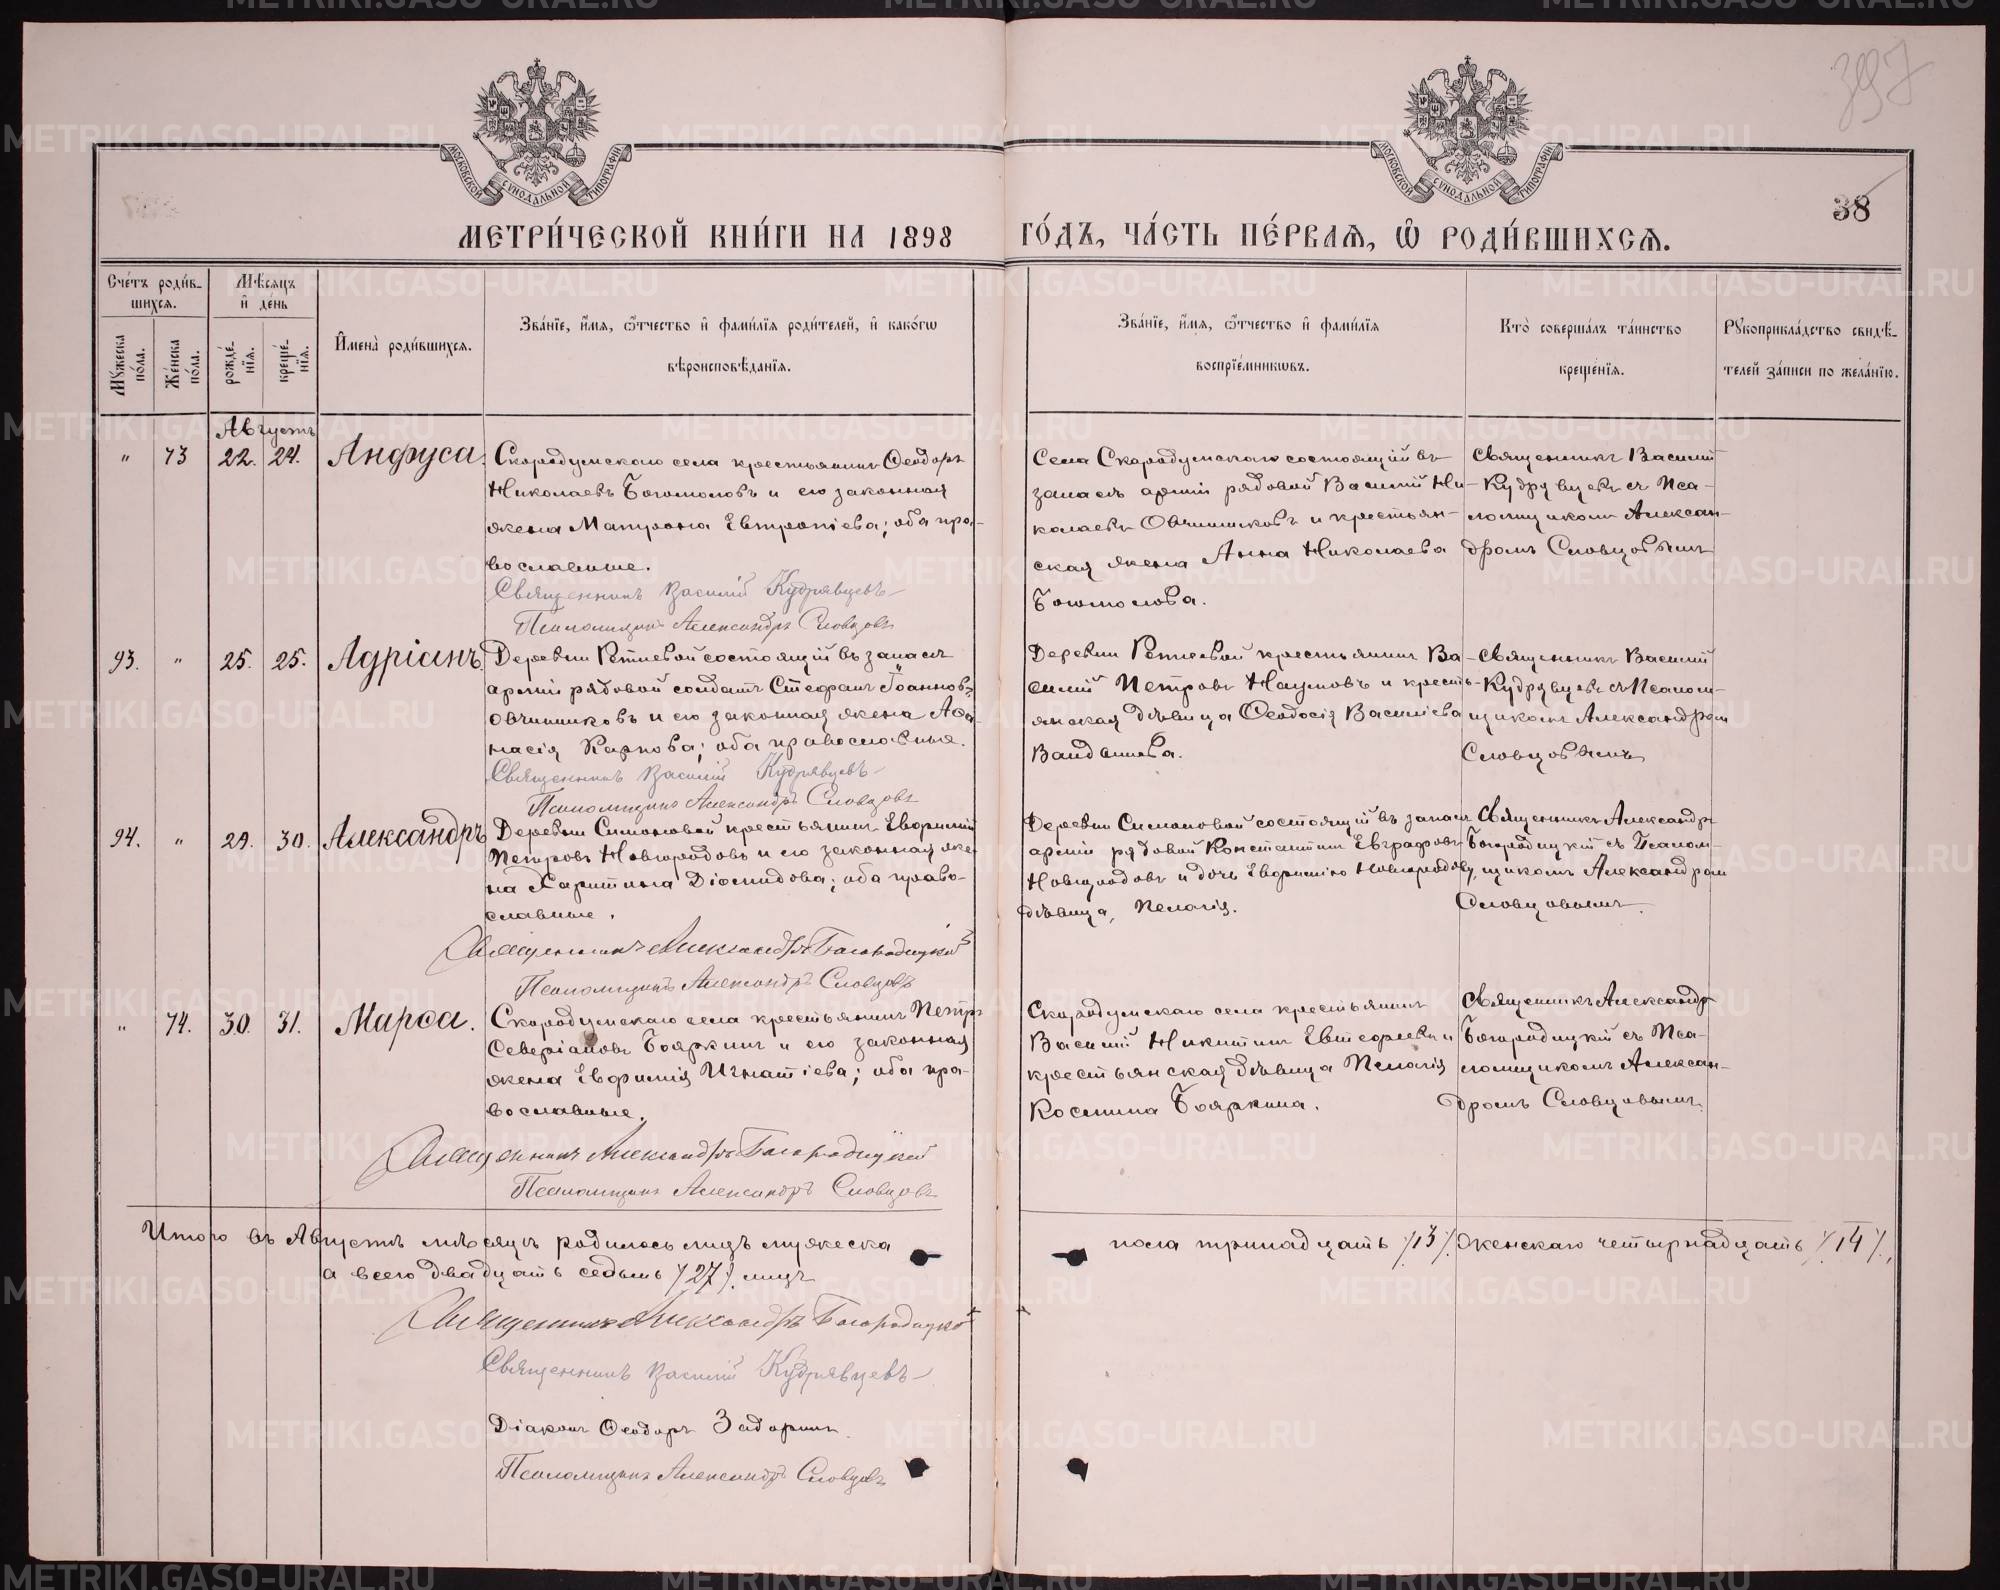 397
38
МОСКОВСКОЙ СѴНОДАЛЬНОЙ ТИПОГРАФИИ
МОСКОВСКОЙ СѴНОДАЛЬНОЙ ТИПОГРАФИИ
МЕТРИ́ЧЕСКОЙ КНИ́ГИ НА 1898 ГО́ДЪ, ЧА́СТЬ ПЕ́РВАЯ, Ѡ РОДИ́ВШИХСЯ.
Сче́тъ роди́в-
шихся.
Мѣ́сяцъ
и де́нь
Мꙋ́жеска по́ла.
Же́нска по́ла.
рожде́нїя.
креще́нїя.
И҆мена̀ роди́вшихся.
Зва́нїе, и҆́мя, ѻ҆́тчество и҆ фами́лїя роди́телей, и҆ како́гѡ
вѣроисповѣ́данїя.
Зва́нїе, и҆́мя, ѻ҆́тчество и҆ фами́лїя
воспрїе́мникѡвъ.
Кто̀ соверша́лъ та́инство
креще́нїя.
Рꙋкоприкла́дство свидѣ́-
телей за́писи по жела́нїю.
Августъ
" 73 22. 24. Анфуса.
Скородумскаго села крестьянинъ Ѳеодоръ
Николаевъ Богомоловъ и его законная
жена Матрона Евтропіева; оба пра-
вославные.
Священникъ Василій Кудрявцевъ
Псаломщикъ Александръ Словцовъ
Села Скородумскаго состоящій въ
запасѣ арміи рядовой Василій Ни-
колаевъ Овчинниковъ и крестьян-
ская жена Анна Николаева
Богомолова.
Священникъ Василій
Кудрявцевъ съ Пса-
ломщикомъ Алексан-
дромъ Словцовымъ
93. " 25. 25. Адріанъ.
Деревни Ретневой состоящій въ запасѣ
арміи рядовой солдатъ Стефанъ Іоанновъ
Овчинниковъ и его законная жена Аѳа-
насія Карпова; оба православные.
Священникъ Василій Кудрявцевъ
Псаломщикъ Александръ Словцовъ
Деревни Ретневой крестьянинъ Ва-
силій Петровъ Наумовъ и кресть-
янская дѣвица Ѳеодосія Василіева
Священникъ Василій
Кудрявцевъ съ Псалом-
щикомъ Александромъ
Словцовымъ
94. " 29. 30. Александръ
Деревни Симоновой крестьянинъ Евфимій
Петровъ Новгородовъ и его законная же-
на Харитина Діомидова; оба право-
славные.
Священникъ Александръ Богородицкій
Псаломщикъ Александръ Словцовъ
Деревни Симоновой состоящій въ запасѣ
арміи рядовой Константинъ Евграфовъ
Новгородовъ и дочь Евфимію Новгородову,
дѣвица, Пелагія.
Священникъ Александръ
Богородицкій съ Псалом-
щикомъ Александромъ
Словцовымъ.
" 74. 30. 31. Марѳа.
Скородумскаго села крестьянинъ Петръ
Северіановъ Бояркинъ и его законная
жена Евфимія Игнатіева; оба пра-
вославные.
Священникъ Александръ Богородицкій
Псаломщикъ Александръ Словцовъ
Скородумскаго села крестьянинъ
Василій Никитинъ Евтефеевъ и
крестьянская дѣвица Пелагія
Космина Бояркина.
Священникъ Александръ
Богородицкій съ Пса-
ломщикомъ Алексан-
дромъ Словцовымъ.
Итого въ Августѣ мѣсяцѣ родилось лицъ мужеска пола тринадцать /13/. женскаго четырнадцать /14/.,
а всего двадцать седмь /27/. лицъ
Священникъ Александръ Богородицкій
Священникъ Василій Кудрявцевъ
Діаконъ Ѳеодоръ Задоринъ.
Псаломщикъ Александръ Словцовъ
METRIKI.GASO-URAL.RU